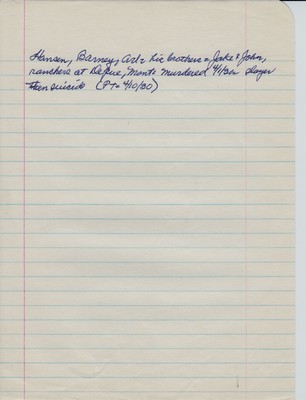 Hansen, Barney, Art & his brothers, Jake & John,
ranchers at Defue, Mont. murdered 4/1/30 slayer
then suicide (PT- 4/10/30)